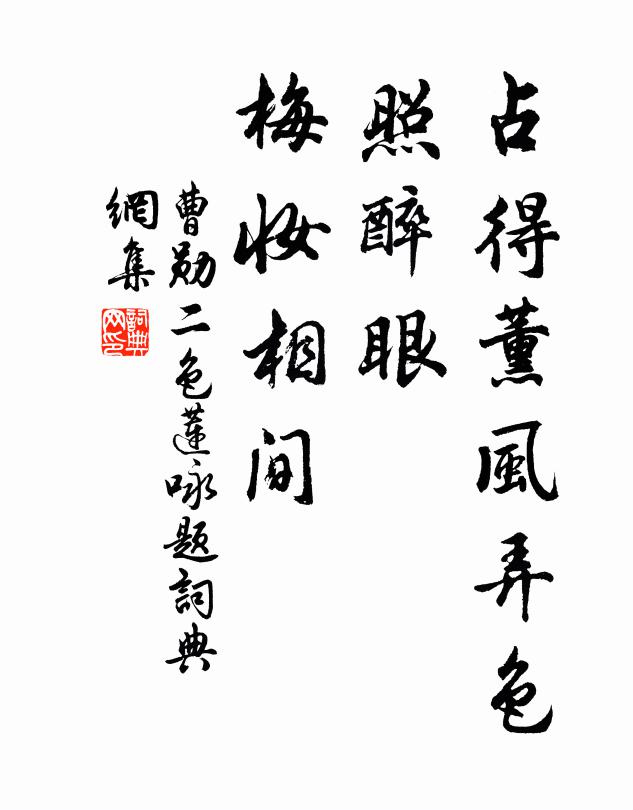 占得薰風弄色
照醉眼
梅妝相間
曹勛二色蓮咏題詞典
網集
詞典網印